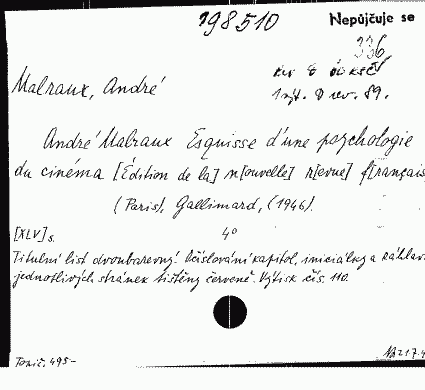 198510
Nepůjčuje se
336
Malraux, André
1 výt. D rev. 89.
André Malraux Esquisse d'une psychologie
du cinéma [Édition de la] n[ouvelle] r[evue] f[rançais
(Paris), Gallimard, (1946).
[XLV] s. 4°
Titulní list dvoubarevný. Očíslování kapitol, iniciálky a záhlav
jednotlivých stránek tištěny červeně. Výtisk čís. 110.
495-